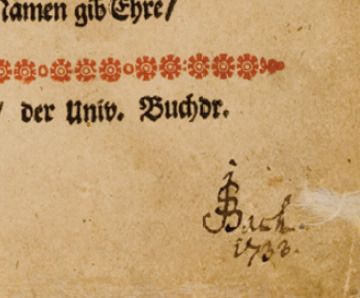 Namen gib Ehre/
/ der Univ. Buchdr.
JSBach.
1733.